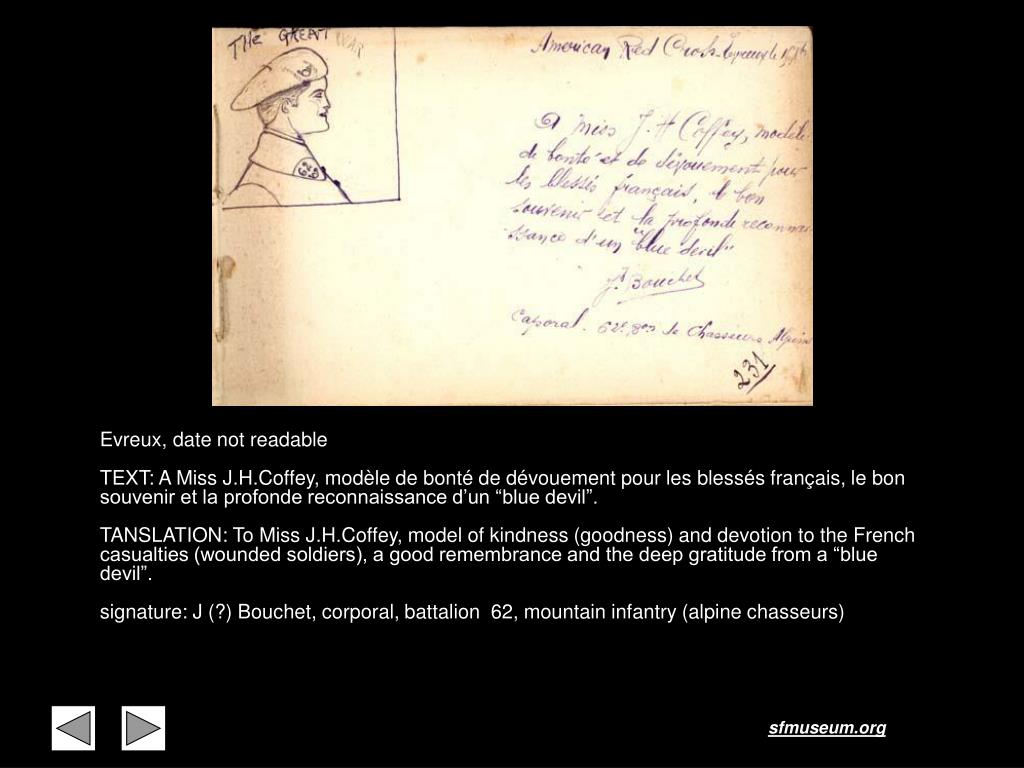 THE GREAT WAR
American Red Cross. Evreux le
A Miss J. H Coffey, modèle
de bonté et de dévouement pour
les blessés français, le bon
souvenir et la profonde reconnai-
ssance d'un "blue devil"
Jt Bouchet
Caporal. 62e Bon de Chasseurs Alpins
231
62
Evreux, date not readable
TEXT: A Miss J.H.Coffey, modèle de bonté de dévouement pour les blessés français, le bon
souvenir et la profonde reconnaissance d’un “blue devil”.
TANSLATION: To Miss J.H.Coffey, model of kindness (goodness) and devotion to the French
casualties (wounded soldiers), a good remembrance and the deep gratitude from a “blue
devil”.
signature: J (?) Bouchet, corporal, battalion 62, mountain infantry (alpine chasseurs)
sfmuseum.org